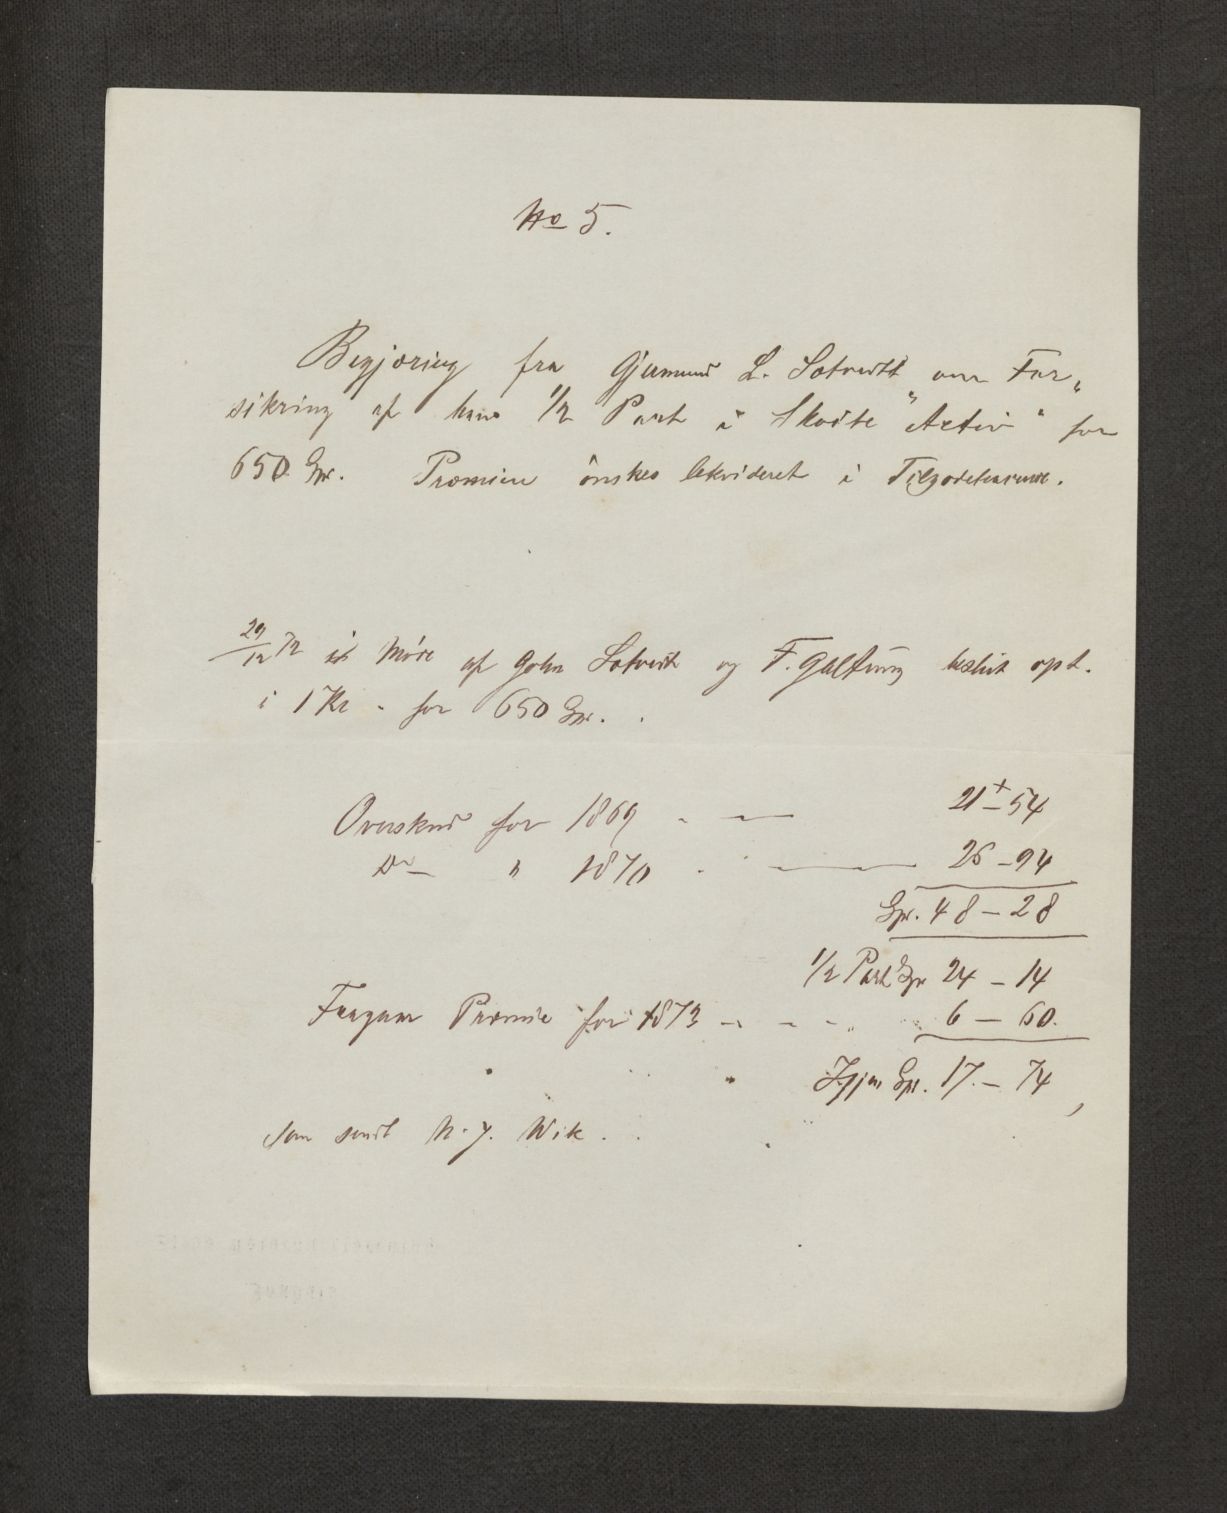 No 5.
Begjæring fra Gjermund L. Sotvedt om For„
sikring af hans 1/2 Part i Skøite "Activ" for
650 Spr. Præmien önskes likvideret i Tilgodehavende.
29/12 72 i Möde af John Sotvedt og F. Galtung beslut opt.
i 1 Kl. for 650 Spr.
Overskud for 1869 - — 21 – 54
Do " 1870 - — 26 – 94
Spr. 48 – 28
1/2 Part Spr 24 – 14
Fragaar Præmie for 1873 - - - 6 – 60.
Igjen Spr. 17 – 74,
som sendt N. J. Wik.